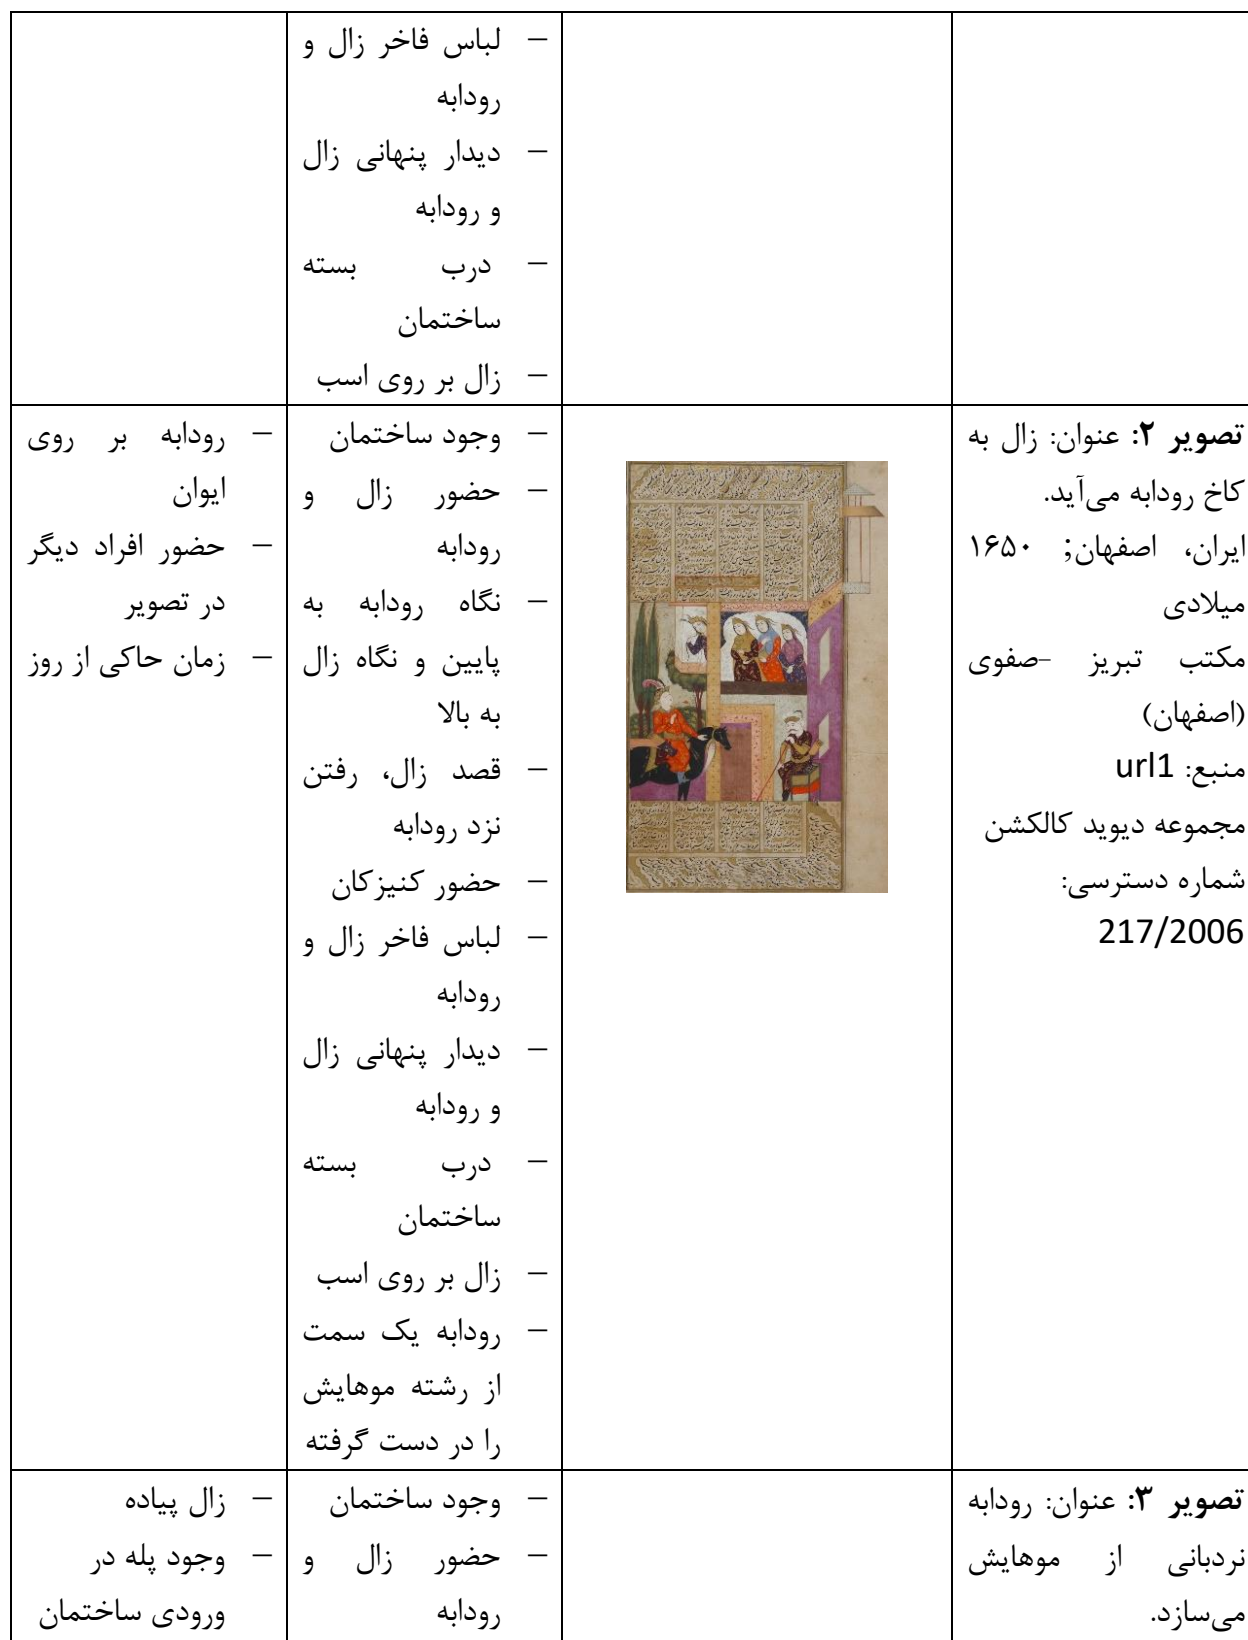 – لباس فاخر زال و
رودابه
– دیدار پنهانی زال
و رودابه
– درب بسته
ساختمان
– زال بر روی اسب
تصویر ۲: عنوان: زال به
کاخ رودابه می‌آید.
ایران، اصفهان; ۱۶۵۰
میلادی
مکتب تبریز -صفوی
(اصفهان)
منبع: url1
مجموعه دیوید کالکشن
شماره دسترسی:
217/2006
– وجود ساختمان
– حضور زال و
رودابه
– نگاه رودابه به
پایین و نگاه زال
به بالا
– قصد زال، رفتن
نزد رودابه
– حضور کنیزکان
– لباس فاخر زال و
رودابه
– دیدار پنهانی زال
و رودابه
– درب بسته
ساختمان
– زال بر روی اسب
– رودابه یک سمت
از رشته موهایش
را در دست گرفته
– رودابه بر روی
ایوان
– حضور افراد دیگر
در تصویر
– زمان حاکی از روز
تصویر ۳: عنوان: رودابه
نردبانی از موهایش
می‌سازد.
– وجود ساختمان
– حضور زال و
رودابه
– زال پیاده
– وجود پله در
ورودی ساختمان